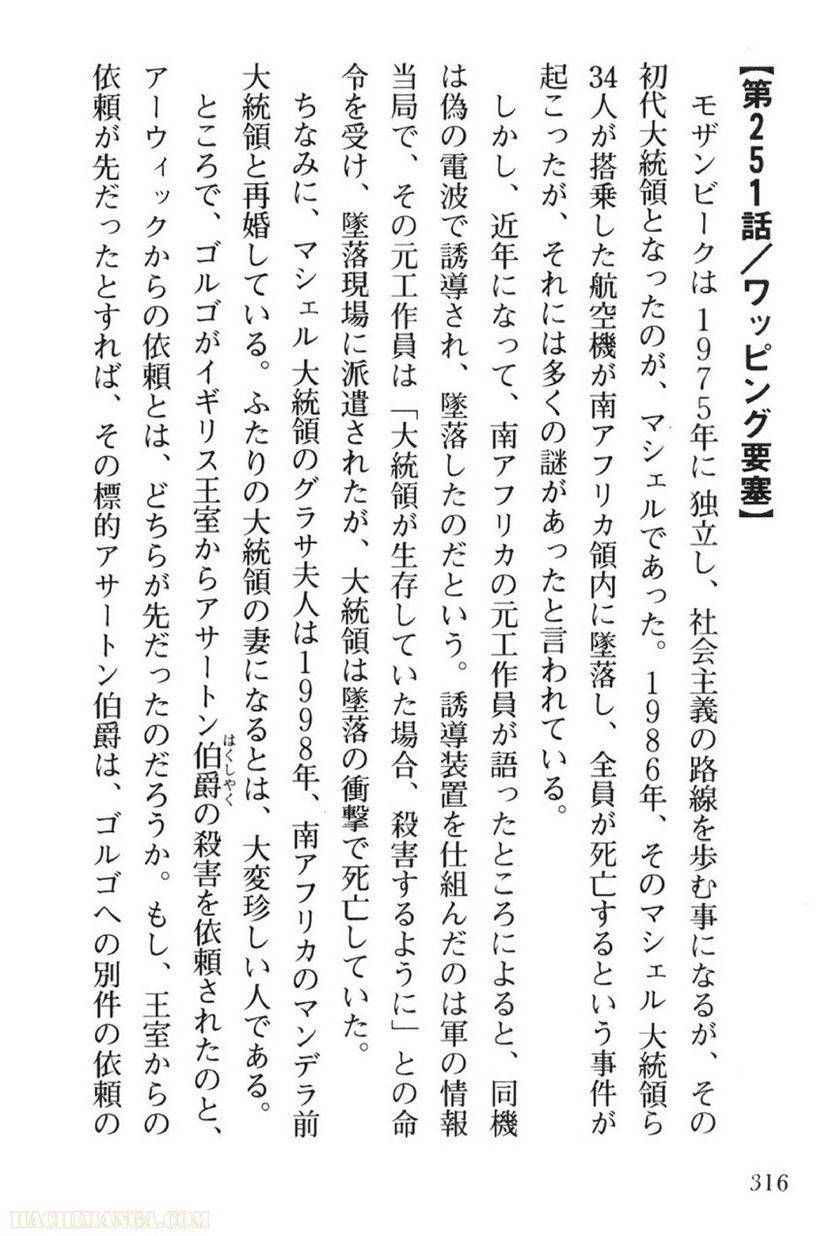 【第251話／ワッピング要塞】
モザンビークは1975年に独立し、社会主義の路線を歩む事になるが、その
初代大統領となったのが、マシェルであった。1986年、そのマシェル大統領ら
34人が搭乗した航空機が南アフリカ領内に墜落し、全員が死亡するという事件が
起こったが、それには多くの謎があったと言われている。
しかし、近年になって、南アフリカの元工作員が語ったところによると、同機
は偽の電波で誘導され、墜落したのだという。誘導装置を仕組んだのは軍の情報
当局で、その元工作員は「大統領が生存していた場合、殺害するように」との命
令を受け、墜落現場に派遣されたが、大統領は墜落の衝撃で死亡していた。
ちなみに、マシェル大統領のグラサ夫人は1998年、南アフリカのマンデラ前
大統領と再婚している。ふたりの大統領の妻になるとは、大変珍しい人である。
ところで、ゴルゴがイギリス王室からアサートン伯爵の殺害を依頼されたのと、
はくしゃく
アーウィックからの依頼とは、どちらが先だったのだろうか。もし、王室からの
依頼が先だったとすれば、その標的アサートン伯爵は、ゴルゴへの別件の依頼の
316
HACHIMANGA.COM